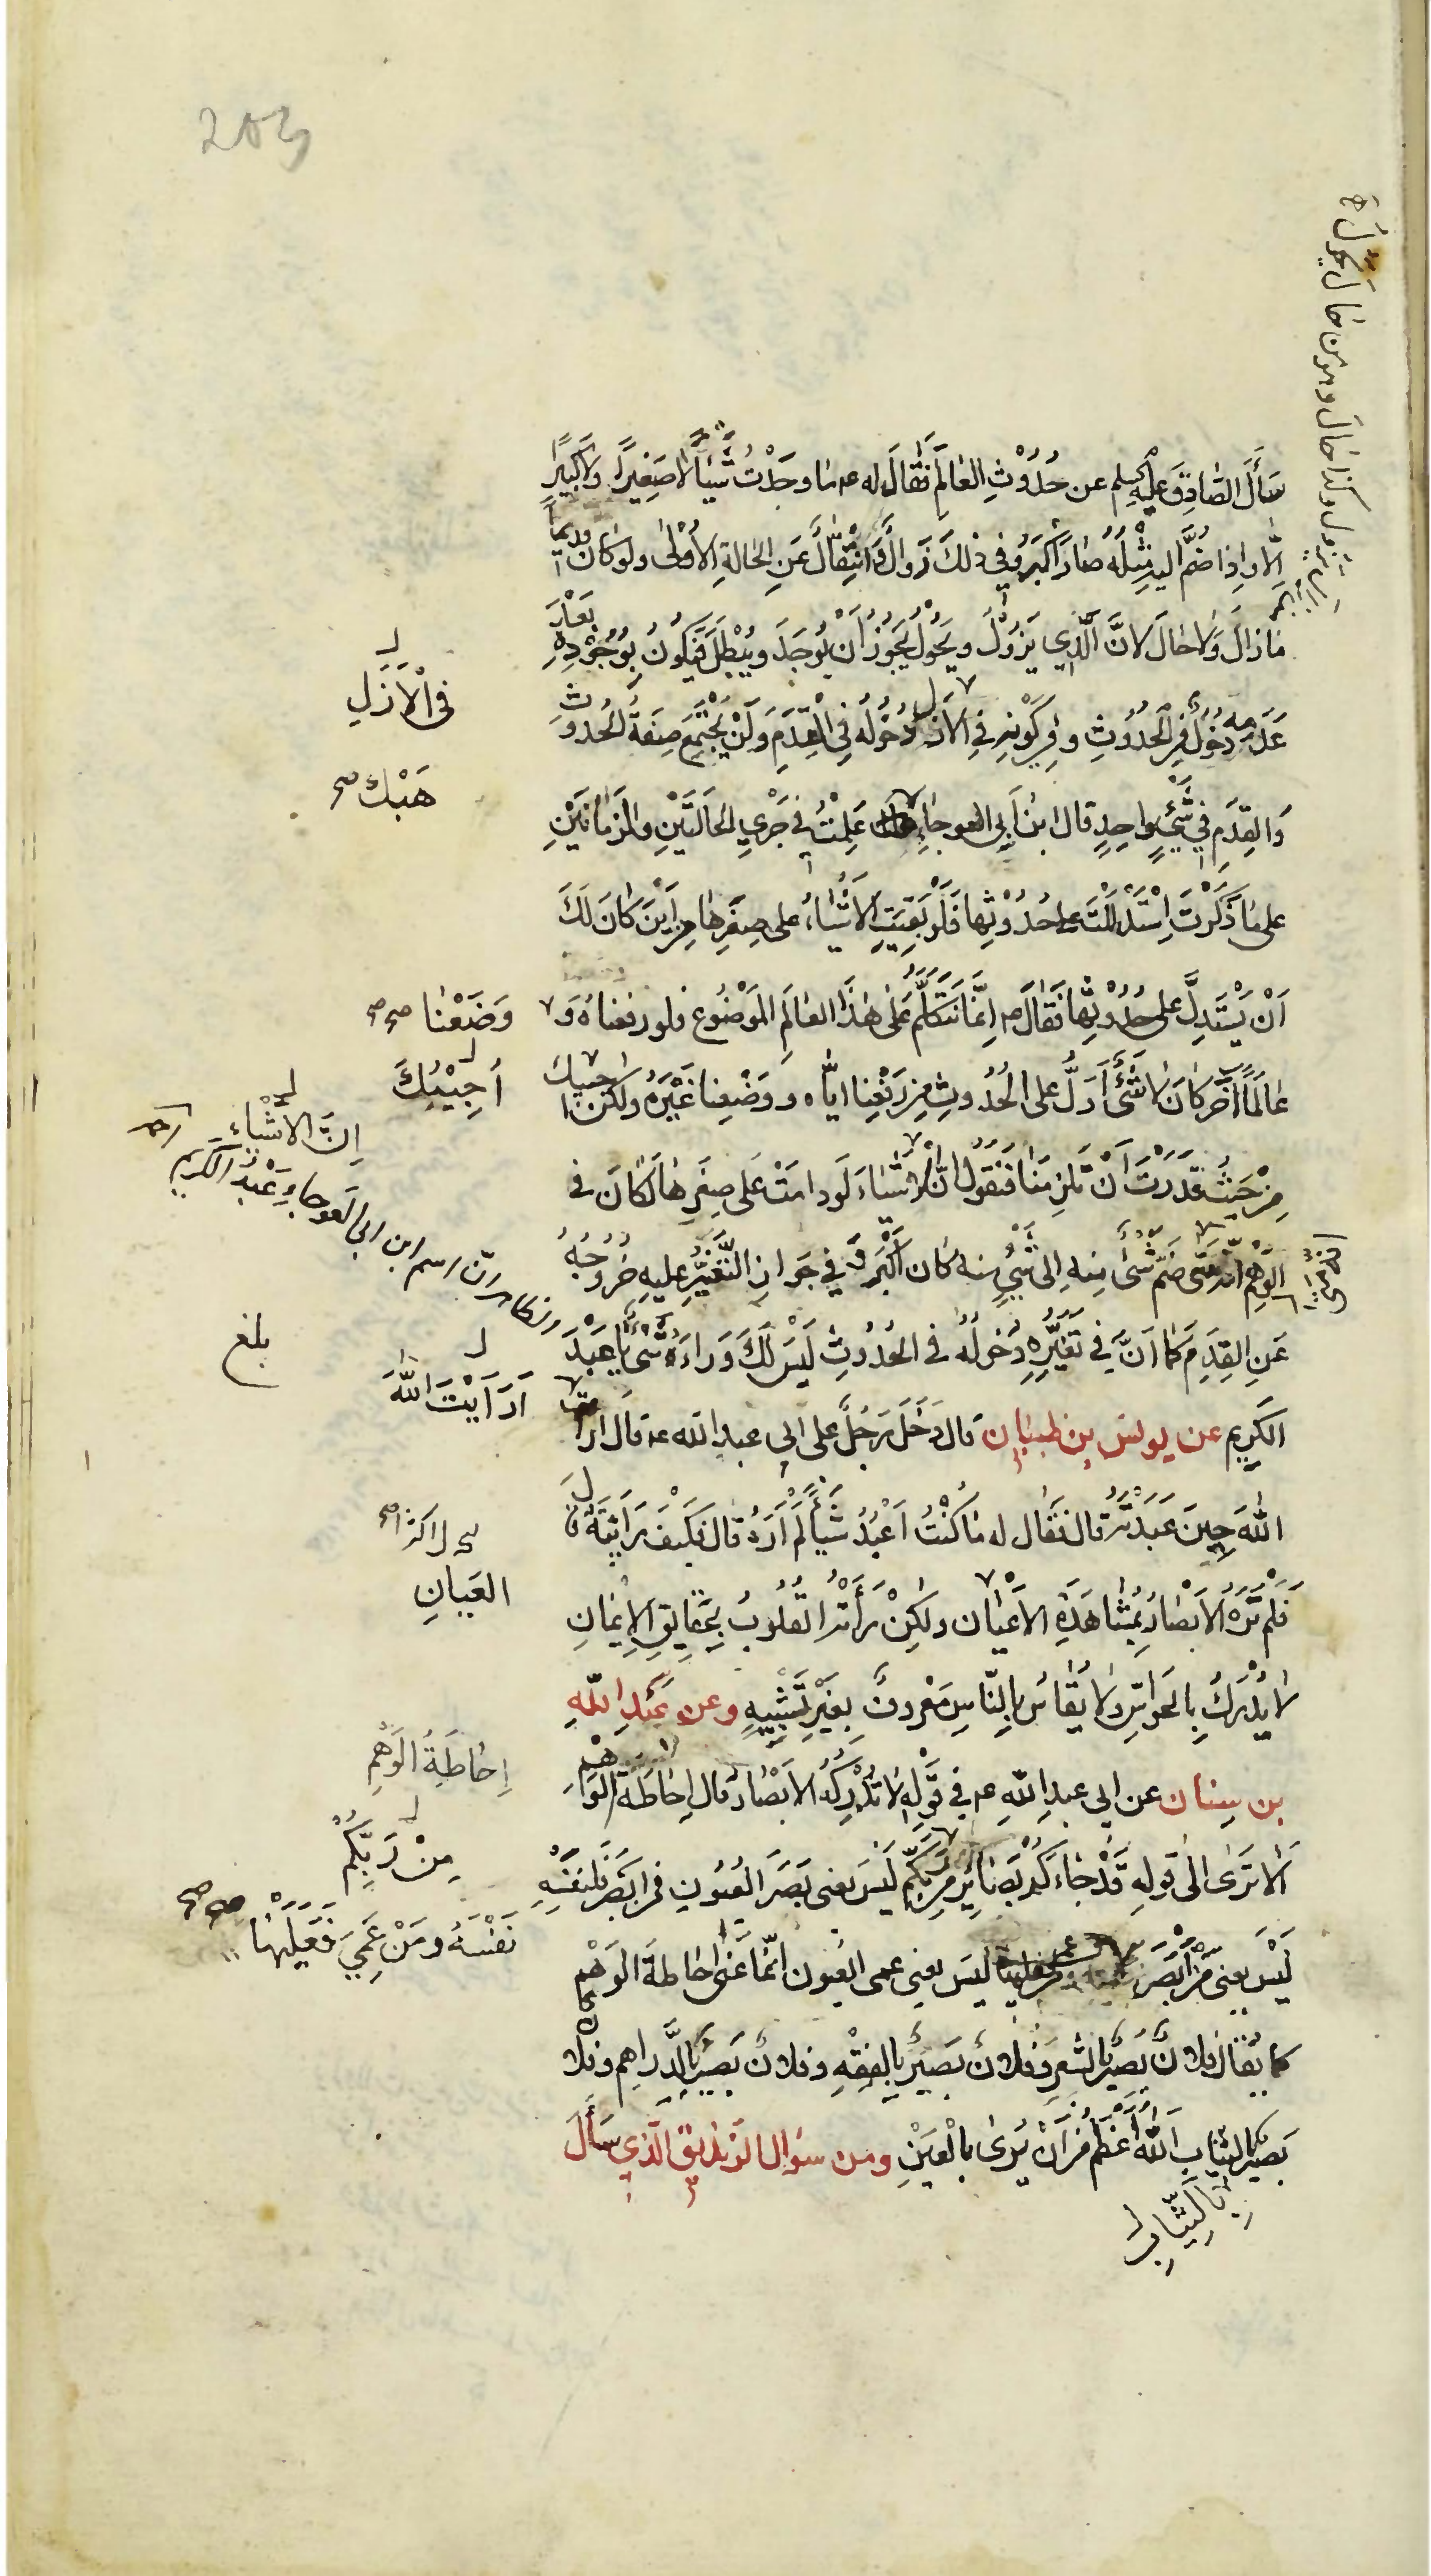 سَأَلَ الصَّادِقَ عليه السلم عن حُدُوْثِ العَالَمِ فَقَالَ له ع مٰا وجَدْتُ شَيْئاً لاٰ صَغِيْراً ولاٰ كَبِيْراً
الّٰا واِذا ضُمَّ اليهِ مِثْلُهُ صٰارَ أكْبَرَ وفي ذٰلكَ زَوالٌ وَانْتِقٰالٌ عَنِ الحٰالةِ الأُوْلىٰ ولو كٰان قديماً
مٰا زالَ ولاٰ حٰالَ لانَّ الَّذِي يَزُوْلُ ويَحُوْلُ يَجُوْزُ أنْ يُوْجَدَ ويُبْطَلَ فَيَكُونُ بِوُجُوْدِهِ بَعْدَ
عَدَمِهِ دُخُولٌ فِي الحُدُوْثِ وفي كَوْنِهِ فِي الأزل دُخُوْلُهُ فِي الْقِدَمِ وَلَنْ يَجْتَمِعَ صِفَةُ الحُدُوث
وَالقِدَمِ فِي شَيْءٍ وٰاحِدٍ قال ابنُ أبي العوجاءِ عَلِمْتُ فِي جَرْيِ الحٰالَتَيْنِ والزَمٰانَيْنِ
على مٰا ذَكَرْتَ اِسْتَدْلَلْتَ على حُدُوْثِها فَلَوْ بَقِيَتِ الأشْيٰاءُ على صِغَرِهٰا مِنْ أيْنَ كَانَ لَكَ
أنْ يَسْتَدِلَّ على حُدُوْثِهٰا فَقٰالَ ع اِنَّمٰا نَتَكَلَّمُ عَلىٰ هٰذَا العٰالَمِ المَوْضُوعِ فلو رفعنٰاهُ وَ
عٰالَماً آخَرَ كٰانَ لاٰ شَيْءَ أدَلُّ على الحُدُوثِ مِنْ رَفْعِنٰا ايّٰاه ووَضْعِنٰا غَيْرَهُ ولكن اجيبك
مِنْ حَيْثُ قَدَرْتَ أنْ تَلزِمَنٰا فَنَقُولُ اِنَّ الأشْيٰاءَ لَو دامَتْ عَلىٰ صِغَرِهٰا لَكٰانَ فِي
الوَهْمِ أنّه مَتى ضُمَّ شَيْءٌ مِنهِ اِلى شَيْءٍ منه كان أكْبَرَ وفي جَوازِ التَّغَيُّرِ عليهِ خُرُوجُهُ
عَنِ القِدَمِ كَمٰا اَنَّ فِي تَغَيُّرِهِ دُخولُهُ فِي الحُدُوثِ لَيْسَ لَكَ وَراءَهُ شَيْءٌ يٰا عَبْدَ
الكَرِيمِ عن يونس بن ظبيٰان قال دَخَلَ رَجُلٌ على ابي عبد الله ع قال ارأيت
اللهَ حِينَ عَبَدْتَهُ قال فقٰال له مٰا كُنْتُ اَعْبُدُ شَيْأً لَمْ أرَهُ قال فكيفَ رَأيْتَهُ قال
فَلَم تَرَهُ الأبْصٰارُ بِمُشٰاهَدَةِ الأعْيٰان ولٰكِنْ رَأتْهُ القُلوبُ بِحَقٰايِقِ الإيمٰانِ
لاٰ يُدْرَكُ بِالحَوٰاسِّ ولاٰ يُقٰاسُ بِالنّاسِ مَعْروفٌ بِغَيْرِ تَشْبِيهٍ وعن عَبْدِ اللهِ
بن سِنٰان عن ابي عبدِ اللهِ ع في قَوْلِهِ لاٰ تُدْرِكُهُ الأبْصٰارُ قٰال اِحٰاطَةُ الْوَهْمِ
ألاٰ تَرٰى إلى قولِهِ قَدْ جٰاءَكُمْ بَصٰائِرُ مِنْ رَبِّكُمْ لَيْسَ يعنى بَصَرَ العُيُونِ فمن اَبْصَرَ فَلِنَفْسِهِ
لَيْسَ يعنى مَنْ أبْصَرَ لَيسَ يعنى عمى العُيون اِنَّمٰا عَنىٰ اِحٰاطَةَ الوَهْمِ
كما يُقٰالُ فلانٌ بَصيرٌ بِالشِّعرِ وفلانٌ بَصيرٌ بِالفِقْهِ وفلانٌ بَصيرٌ بِالدَّراهِمِ وفلان
بَصيرٌ بالثيٰابِ اللهُ أعْظَمُ مِنْ أنْ يُرىٰ بالْعَيْنِ ومن سؤال الزنديق الَّذي سَأَلَ
فِي الأَزَلِ
هَبْكَ صح
وَضَعْنٰا صح
أُجِيْبُكَ
اِنَّ الأشْيٰاءَ
اسم ابن ابي العوجاءِ عَبْدُ الكريم
بلغ
اَرَاَيْتَ اللهَ
العَيٰانِ
اِحٰاطَةُ الوَهْمِ
مِنْ رَبِّكُمْ
نَفْسَهُ ومَنْ عَمِيَ فَعَلَيْهٰا صح
بِالثِّيٰابِ